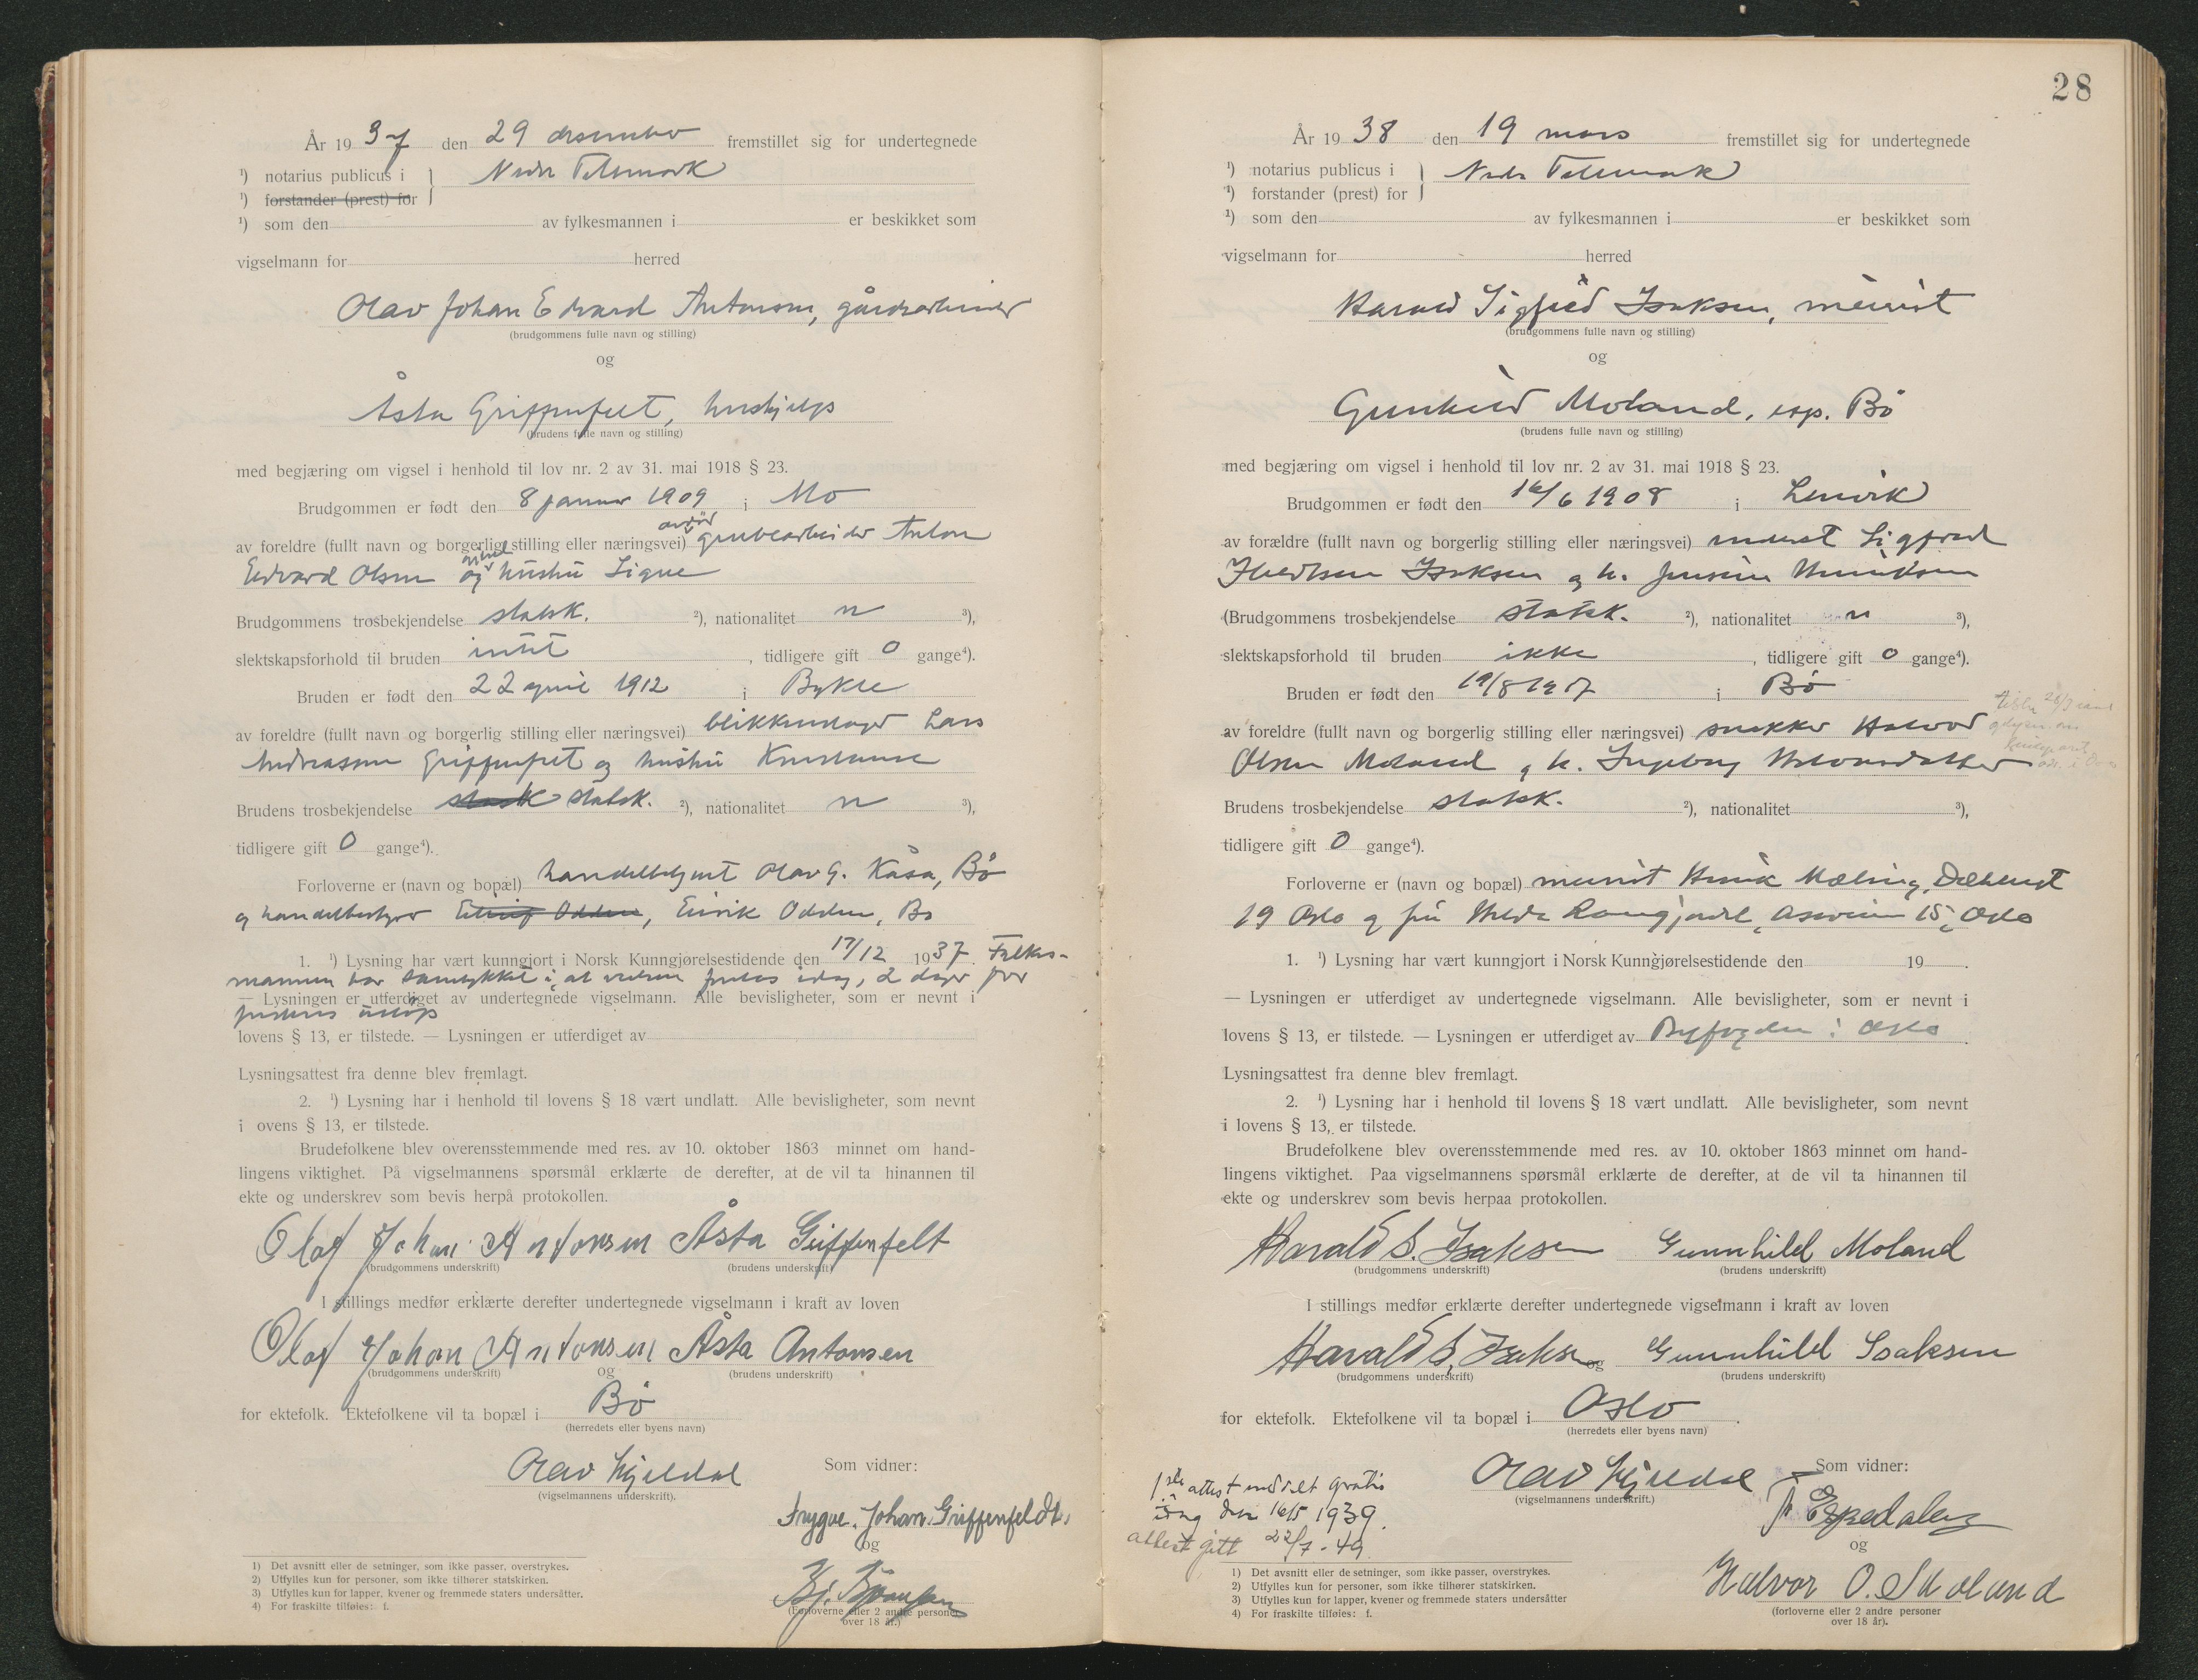 År 1937 den 29 desember fremstillet sig for undertegnede
¹) notarius publicus i } Nedre Telemark
¹) forstander (prest) for
¹) som den av fylkesmannen i er beskikket som
vigselmann for herred
Olav Johan Edvard Antonsen, gårdsarbeider
(brudgommens fulle navn og stilling)
og
Åsta Griffenfelt, hushjelp
(brudens fulle navn og stilling)
med begjæring om vigsel i henhold til lov nr. 2 av 31. mai 1918 § 23.
Brudgommen er født den 8 januar 1909 i Mo
av foreldre (fullt navn og borgerlig stilling eller næringsvei) avdød grubearbeider Anton
Edvard Olsen og hustru Signe
Brudgommens trosbekjendelse statsk. ²), nationalitet n ³),
slektskapsforhold til bruden intet, tidligere gift 0 gange⁴).
Bruden er født den 22 april 1912 i Bykle
av foreldre (fullt navn og borgerlig stilling eller næringsvei) blikkenslager Lars
Andreassen Griffenfelt og hustru Konstanse
Brudens trosbekjendelse statsk. ²), nationalitet n ³),
tidligere gift 0 gange⁴).
Forloverne er (navn og bopæl) handelsbetjent Olav G. Kåsa, Bø
og handelsbestyrer Eirik Odden, Bø
1. ¹) Lysning har vært kunngjort i Norsk Kunngjørelsestidende den 17/12 1937. Fylkes-
mannen har samtykket i, at vielsen foretas idag, 2 dager før
— Lysningen er utferdiget av undertegnede vigselmann. Alle bevisligheter, som er nevnt i
fristens utløp
lovens § 13, er tilstede. — Lysningen er utferdiget av
Lysningsattest fra denne blev fremlagt.
2. ¹) Lysning har i henhold til lovens § 18 vært undlatt. Alle bevisligheter, som nevnt
i ovens § 13, er tilstede.
Brudefolkene blev overensstemmende med res. av 10. oktober 1863 minnet om hand-
lingens viktighet. På vigselmannens spørsmål erklærte de derefter, at de vil ta hinannen til
ekte og underskrev som bevis herpå protokollen.
Olaf Johan Antonsen Åsta Griffenfelt
(brudgommens underskrift) (brudens underskrift)
I stillings medfør erklærte derefter undertegnede vigselmann i kraft av loven
Olaf Johan Antonsen Åsta Antonsen
(brudgommens underskrift) og (brudens underskrift)
for ektefolk. Ektefolkene vil ta bopæl i Bø
(herredets eller byens navn)
Olav Kjeldal Som vidner:
(vigselmannens underskrift).
Trygve. Johan. Griffenfeldt.
og
(Forloverne eller 2 andre personer
over 18 år.)
1) Det avsnitt eller de setninger, som ikke passer, overstrykes.
2) Utfylles kun for personer, som ikke tilhører statskirken.
3) Utfylles kun for lapper, kvener og fremmede staters undersåtter.
4) For fraskilte tilføies: f.
28
År 1938 den 19 mars fremstillet sig for undertegnede
¹) notarius publicus i } Nedre Telemark
¹) forstander (prest) for
¹) som den av fylkesmannen i er beskikket som
vigselmann for herred
Harald Sigfred Isaksen, maskinist
(brudgommens fulle navn og stilling)
og
Gunhild Moland, exp. Bø
(brudens fulle navn og stilling)
med begjæring om vigsel i henhold til lov nr. 2 av 31. mai 1918 § 23.
Brudgommen er født den 16/6 1908 i Lenvik
av forældre (fullt navn og borgerlig stilling eller næringsvei) Sigfred
Isaksen og h. Jensine Henriksen
(Brudgommens trosbekjendelse statsk. ²), nationalitet n ³),
slektskapsforhold til bruden ikke, tidligere gift 0 gange⁴).
Bruden er født den 19/8 1907 i Bø
av foreldre (fullt navn og borgerlig stilling eller næringsvei) snekker Halvor
Olsen Moland og h. Ingeborg Halvorsdatter
Brudens trosbekjendelse statsk. ²), nationalitet ³),
tidligere gift 0 gange⁴).
Forloverne er (navn og bopæl) Henrik Mæling,
19 Oslo og fru Hilda 15, Oslo
1. ¹) Lysning har vært kunngjort i Norsk Kunngjørelsestidende den 19 .
— Lysningen er utferdiget av undertegnede vigselmann. Alle bevisligheter, som er nevnt i
lovens § 13, er tilstede. — Lysningen er utferdiget av Byfogden i Oslo
Lysningsattest fra denne blev fremlagt.
2. ¹) Lysning har i henhold til lovens § 18 vært undlatt. Alle bevisligheter, som nevnt
i lovens § 13, er tilstede.
Brudefolkene blev overensstemmende med res. av 10. oktober 1863 minnet om hand-
lingens viktighet. Paa vigselmannens spørsmål erklærte de derefter, at de vil ta hinannen til
ekte og underskrev som bevis herpaa protokollen.
Harald S. Isaksen Gunnhild Moland
(brudgommens underskrift) (brudens underskrift)
I stillings medfør erklærte derefter undertegnede vigselmann i kraft av loven
Harald S. Isaksen og Gunnhild Isaksen
(brudgommens underskrift) (brudens underskrift)
for ektefolk. Ektefolkene vil ta bopæl i Oslo.
(herredets eller byens navn)
Olav Kjeldal Som vidner:
(vigselmannens underskrift.)
1ste attest meddelt gratis
idag den 16/5 1939.
attest gitt 22/7-49
T. Espedalen
og
Halvor O. Moland
(forloverne eller 2 andre personer
over 18 år).
1) Det avsnitt eller de setninger, som ikke passer, overstrykes.
2) Utfylles kun for personer, som ikke tilhører statskirken.
3) Utfylles kun for lapper, kvener og fremmede staters undersåtter
4) For fraskilte tilføies: f.